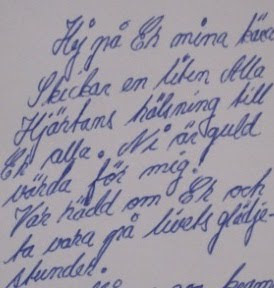 Hej på Er mina kära
Skickar en liten Alla
Hjärtans hälsning till
Er alla. Ni är guld
värda för mig!
Var rädd om Er och
ta vara på livets glädje-
stunder.